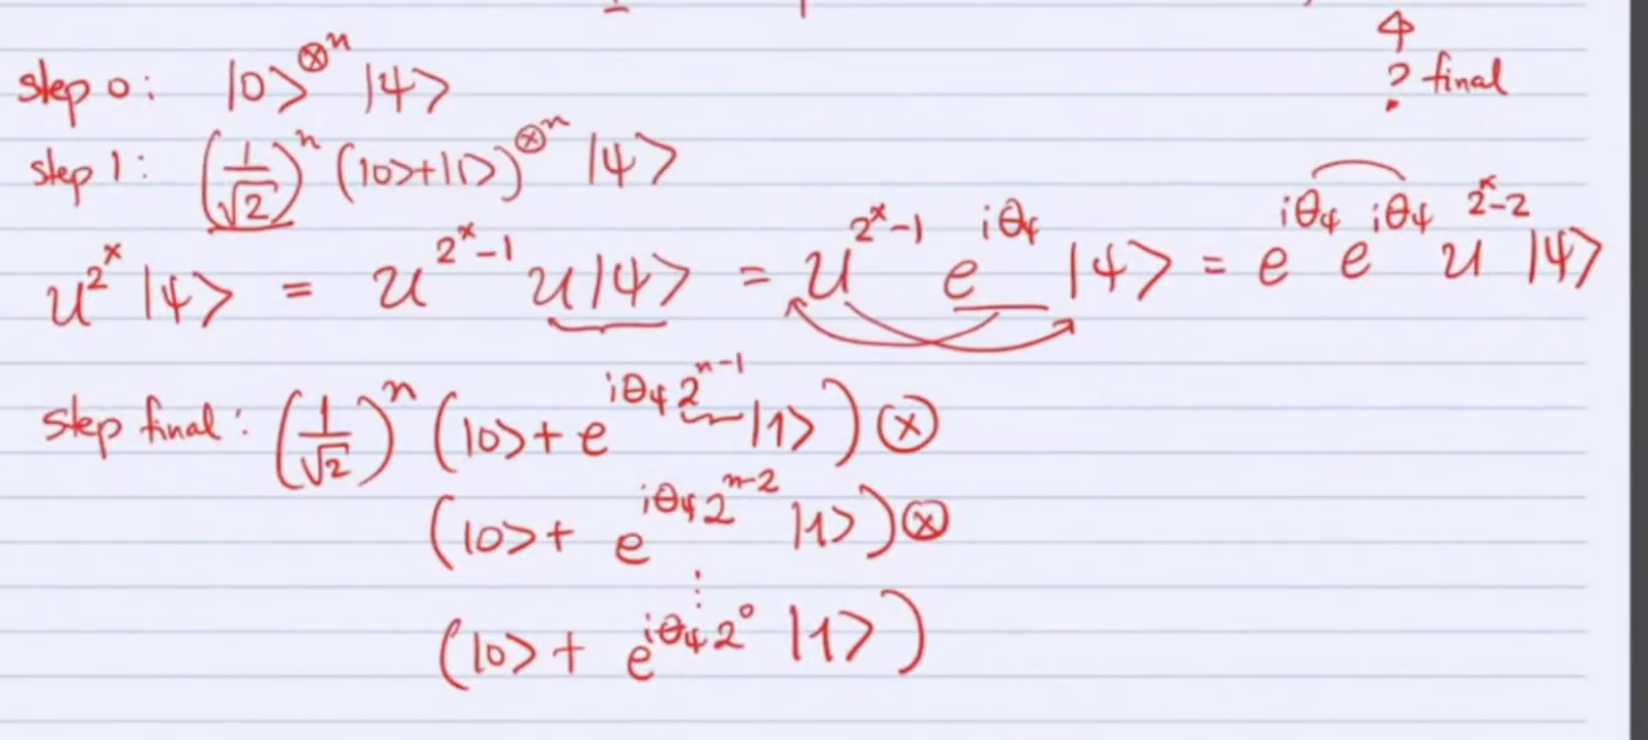 ? final
step 0: |0>^{⊗n} |ψ>
step 1: (1/√2)^n (|0>+|1>)^{⊗n} |ψ>
u^{2^x} |ψ> = u^{2^x-1} u|ψ> = u^{2^x-1} e^{iθψ} |ψ> = e^{iθψ} e^{iθψ} u^{2^x-2} |ψ>
step final: (1/√2)^n (|0>+ e^{iθψ2^{n-1}} |1>) ⊗
(|0>+ e^{iθψ2^{n-2}} |1>) ⊗
⋮
(|0>+ e^{iθψ2^0} |1>)